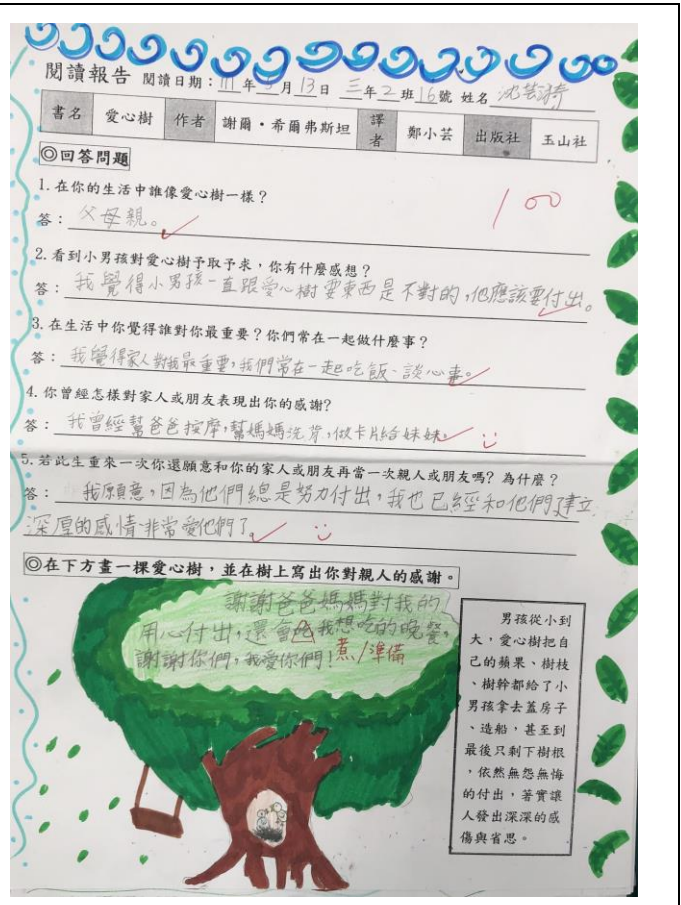 閱讀報告 閱讀日期：111年5月13日 三年2班16號 姓名 沈芸
書名 愛心樹 作者 謝爾・希爾弗斯坦 譯者 鄭小芸 出版社 玉山社
◎回答問題
100
1.在你的生活中誰像愛心樹一樣？
答：父母親。
2.看到小男孩對愛心樹予取予求，你有什麼感想？
答：我覺得小男孩一直跟愛心樹要東西是不對的，他應該要付出。
3.在生活中你覺得誰對你最重要？你們常在一起做什麼事？
答：我覺得家人對我最重要，我們常在一起吃飯、談心事。
4.你曾經怎樣對家人或朋友表現出你的感謝?
答：我曾經幫爸爸按摩，幫媽媽洗背，做卡片給妹妹。
5.若此生重來一次你還願意和你的家人或朋友再當一次親人或朋友嗎？為什麼？
答：我願意，因為他們總是努力付出，我也已經和他們建立
深厚的感情非常愛他們了。
◎在下方畫一棵愛心樹，並在樹上寫出你對親人的感謝。
謝謝爸爸媽媽對我的
用心付出，還會我想吃的晚餐，
謝謝你們，我愛你們！煮/準備
男孩從小到
大，愛心樹把自
己的蘋果、樹枝
、樹幹都給了小
男孩拿去蓋房子
、造船，甚至到
最後只剩下樹根
，依然無怨無悔
的付出，著實讓
人發出深深的感
傷與省思。